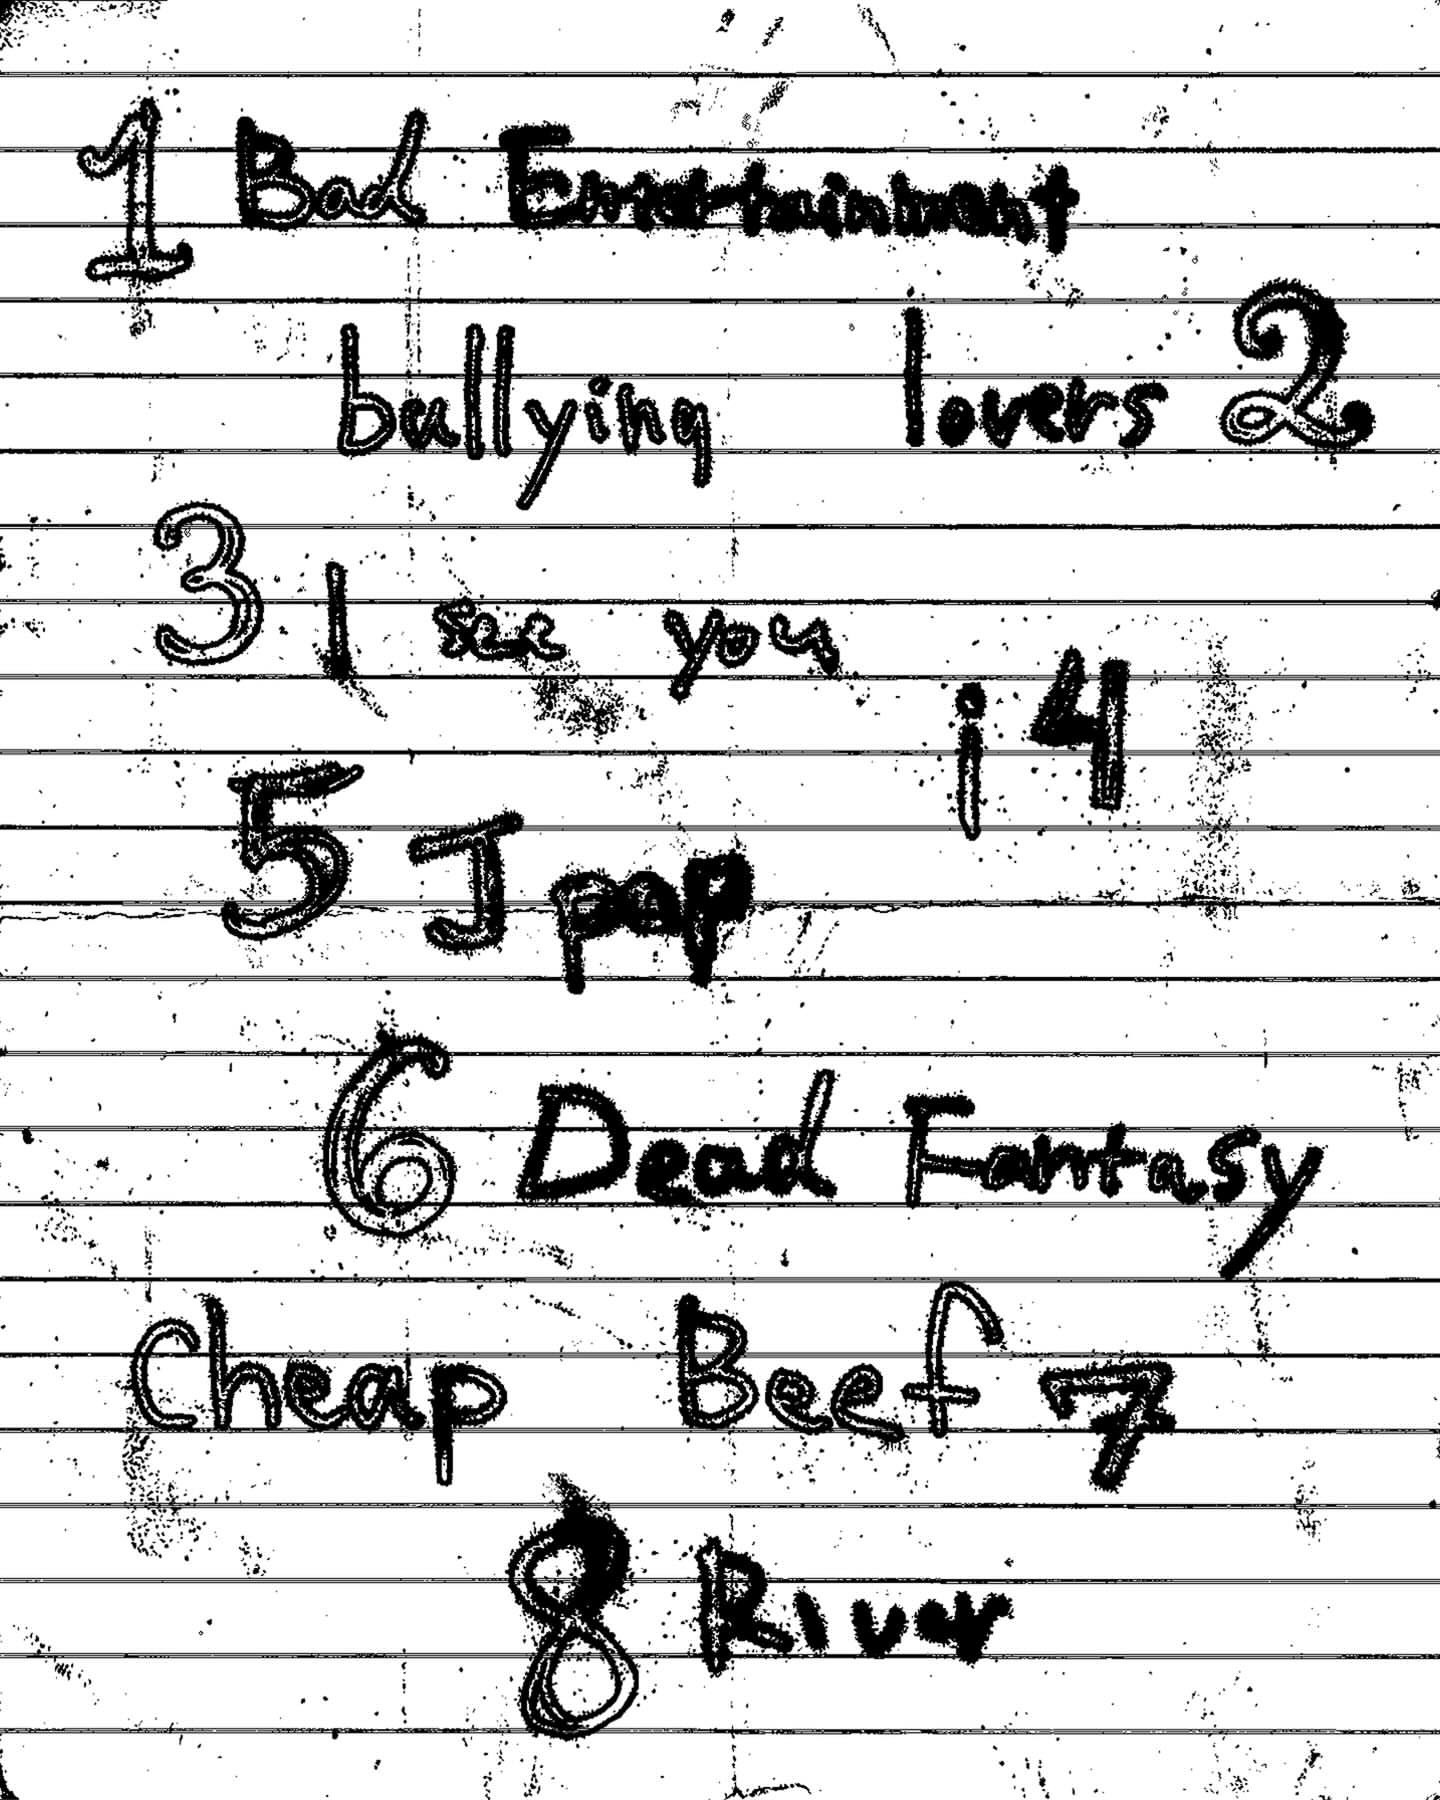 1 Bad Entertainment
bullying lovers 2
3 I see you
i 4
5 J pop
6 Dead Fantasy
Cheap Beef 7
8 River